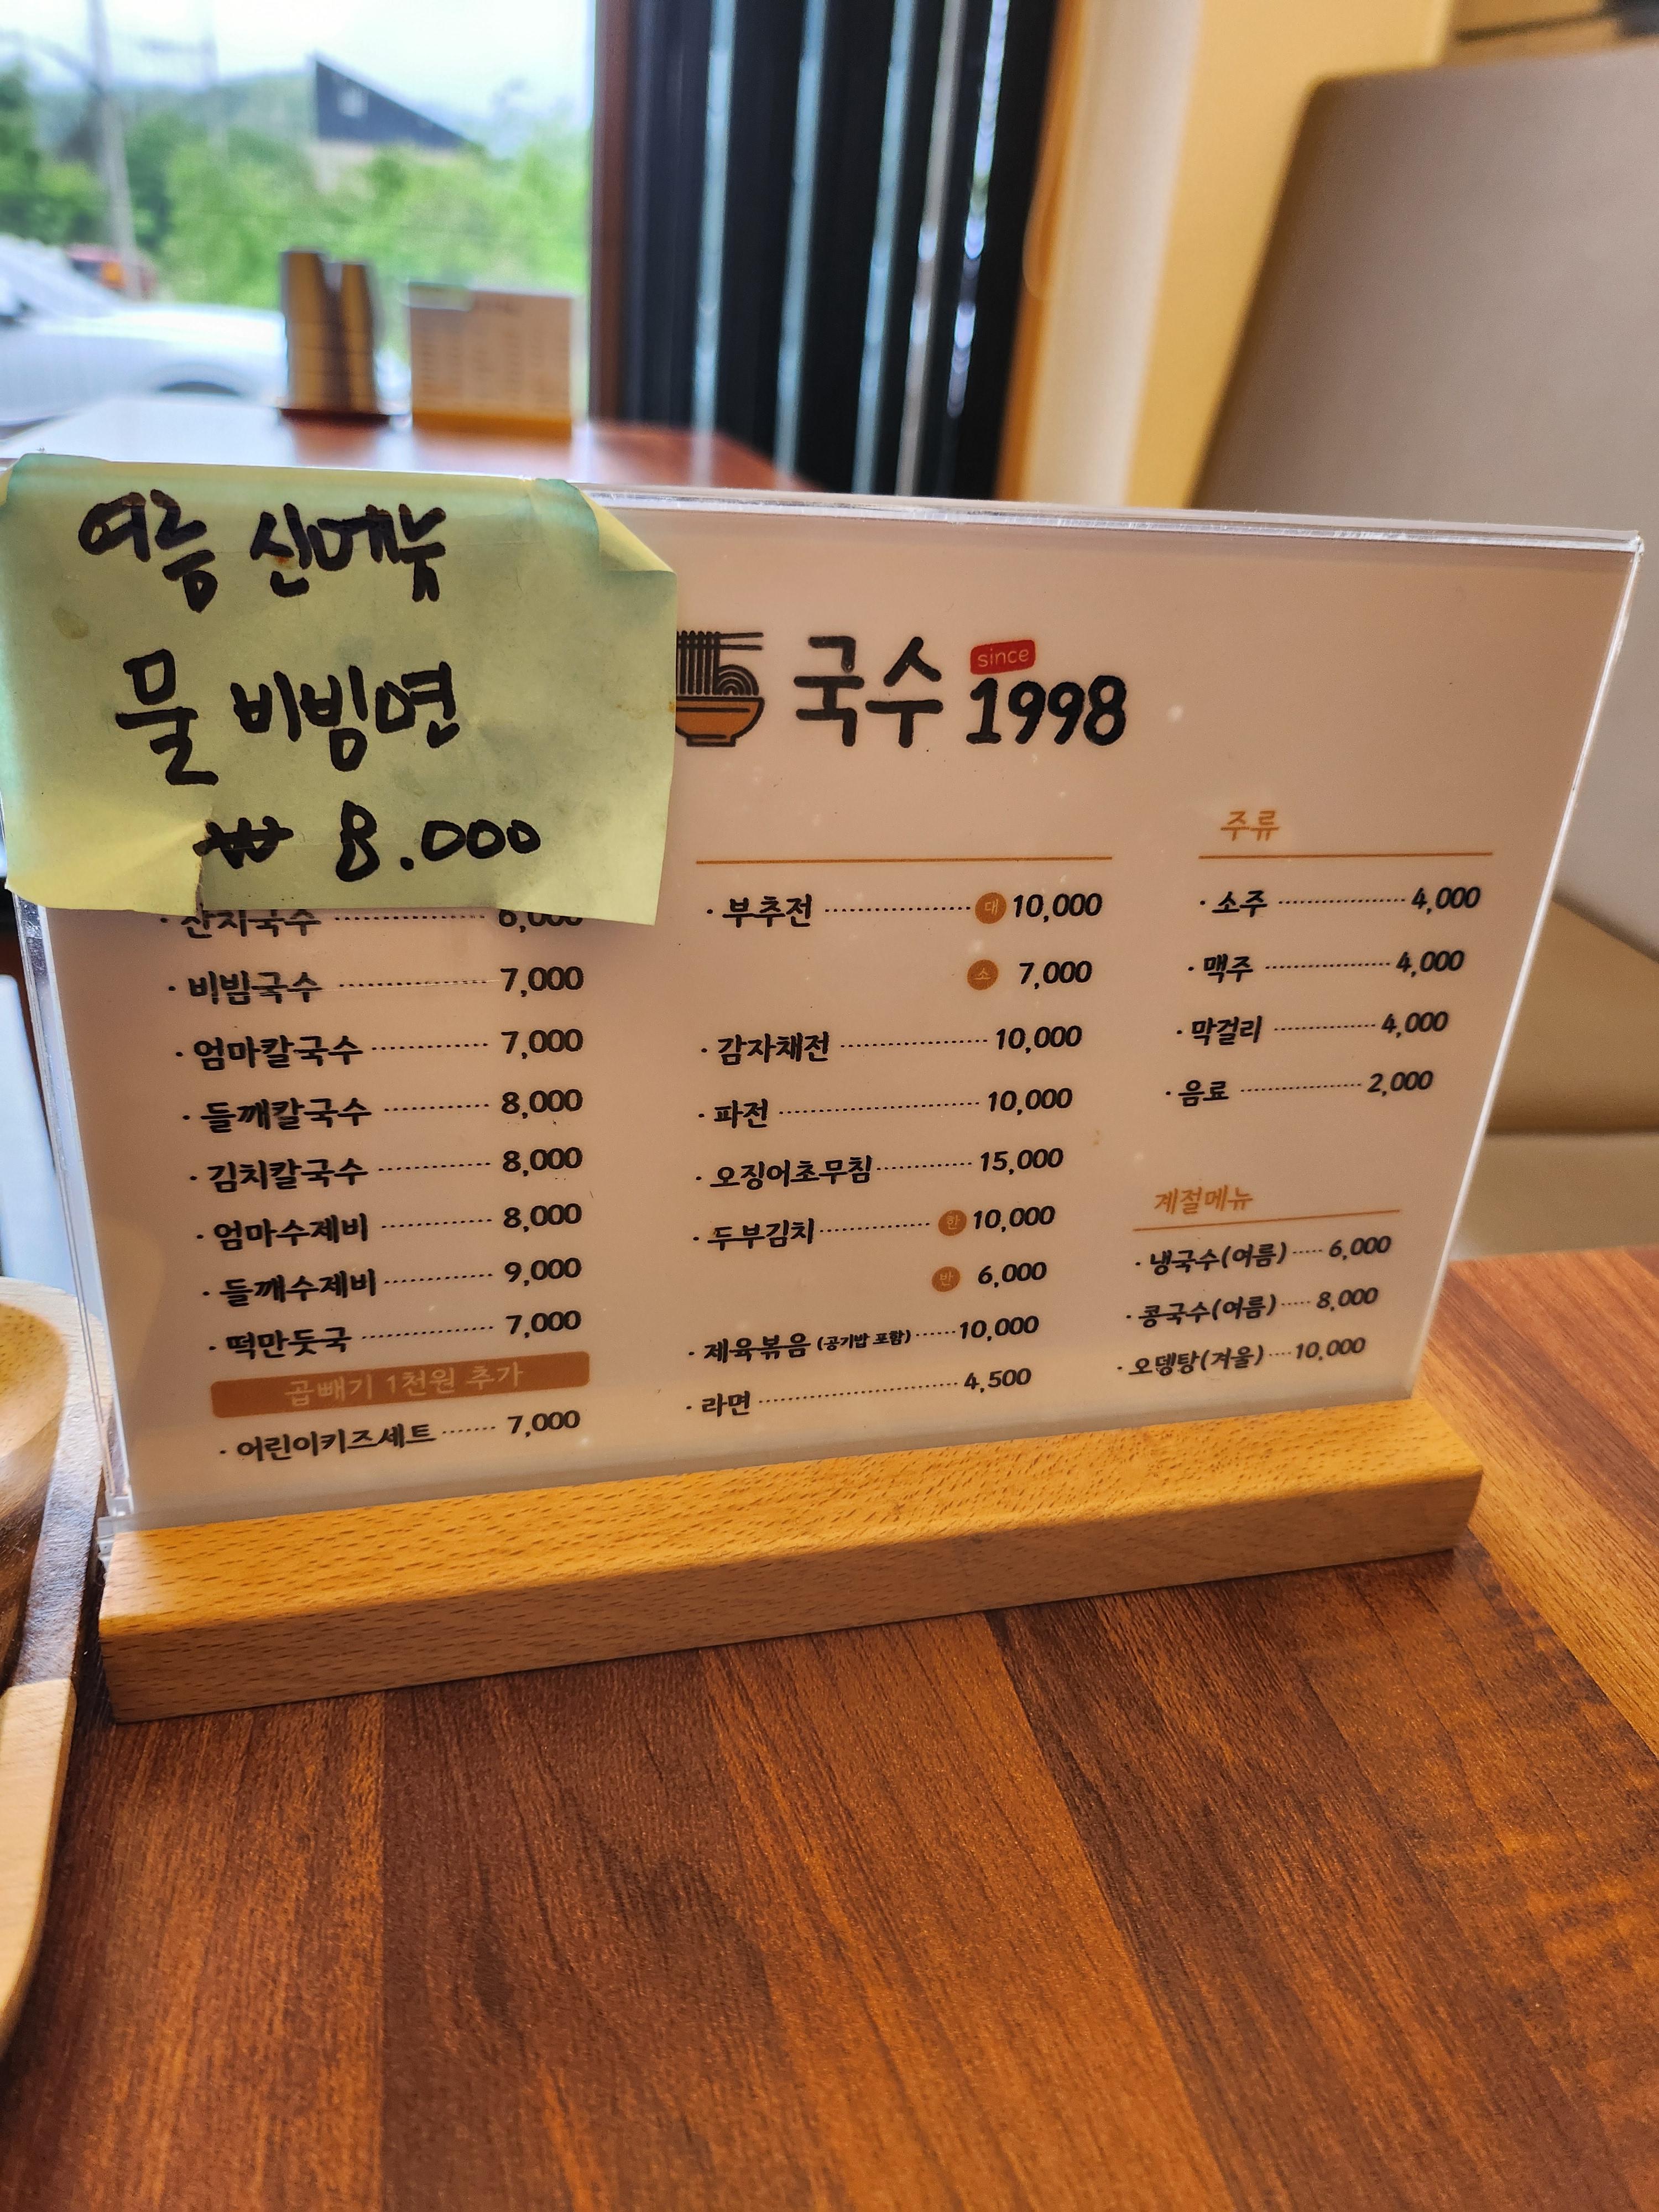 여름 신메뉴
물 비빔면
₩ 8.000
국수 since 1998
· 잔치국수 6,000
· 비빔국수 7,000
· 엄마칼국수 7,000
· 들깨칼국수 8,000
· 김치칼국수 8,000
· 엄마수제비 8,000
· 들깨수제비 9,000
· 떡만둣국 7,000
곱빼기 1천원 추가
· 어린이키즈세트 7,000
· 부추전 대 10,000
소 7,000
· 감자채전 10,000
· 파전 10,000
· 오징어초무침 15,000
· 두부김치 한 10,000
반 6,000
· 제육볶음 (공기밥 포함) 10,000
· 라면 4,500
주류
· 소주 4,000
· 맥주 4,000
· 막걸리 4,000
· 음료 2,000
계절메뉴
· 냉국수(여름) 6,000
· 콩국수(여름) 8,000
· 오뎅탕(겨울) 10,000